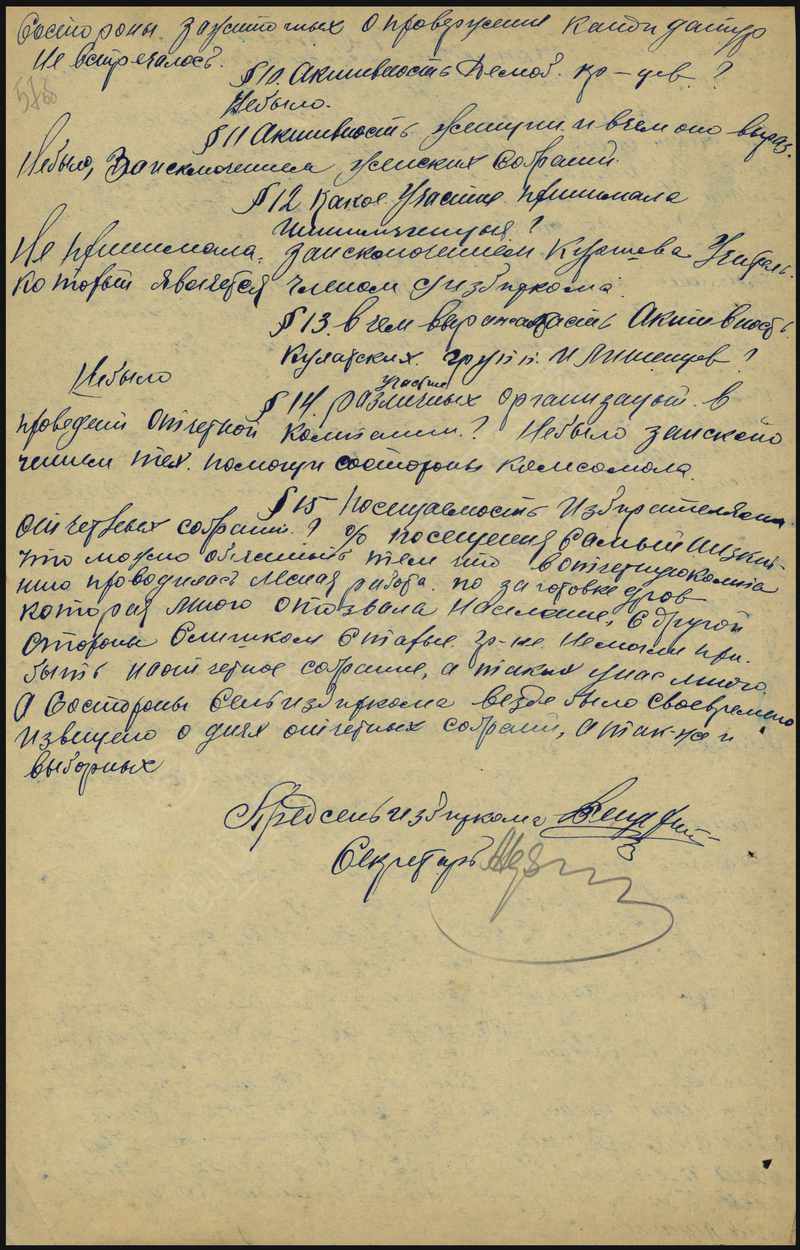 Состороны зажиточных опровержения кандидатур
не встречалось.
578
§ 10. Активность Демоб. кр-цев. ?
Небыло.
§ 11 Активность женщин и вчем оно выраз.
Небыло, Заисключением женских собраний.
§ 12 Какое Участие принимала
интиллигенция ?
Не принимала, заисключением Учитель.
который является членом сизбиркома.
§ 13. в чем выражалась Активность
Кулатских групп. и Лишенцев ?
Небыло
участие
§ 14. различных организаций. в
проведении отчетной компании. ? Небыло заисклю
чением тех. помощи состороны комсомола.
§ 15 Посещаемость Избирателями
отчетных собраний. ? % посещения самый низкий
что можно обяснить тем что вотчетную
проводилась лесная работа. по заготовке дров
которая много отозвала население, с другой
стороны слишком старые. гр-не немогли при.
быть наотчетное собрание, а таких унас много.
А Состороны Сельизбиркома везде было своевремено
извещено о днях отчетных собраний, а так-же и
выборных
Предсельизбиркома
Секретарь